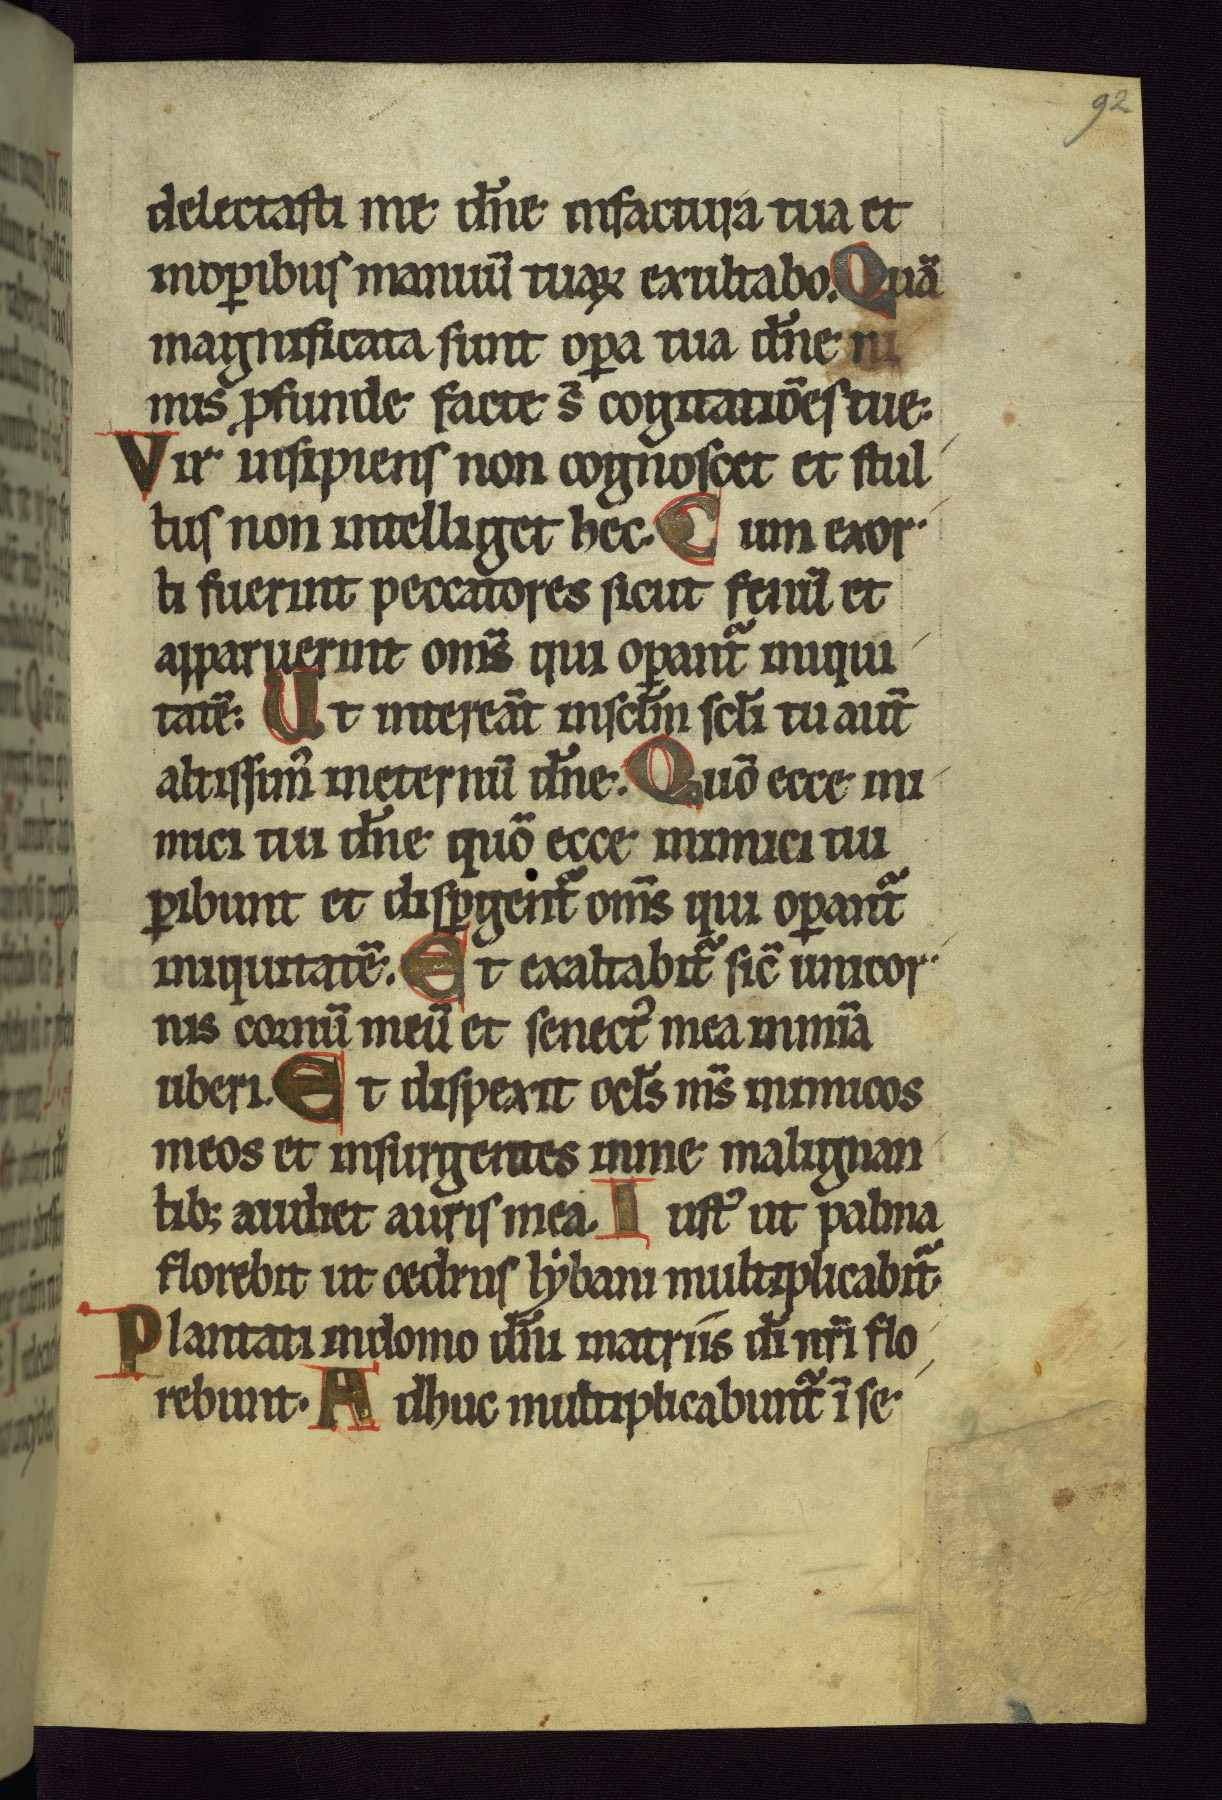 92
delectasti me dn̄e infactura tua et
inoꝑibus manuū tuaꝝ exultabo. Quā
magnificata sunt oꝑa tua dn̄e ni
mis ꝓfunde facte s̄ cogitatiōes tue.
Vir insipiens non cognoscet et stul
tus non intelliget hec. Cum exor
ti fuerint peccatores sicut fenū et
apparuerint om̄s qui oꝑant᷑ iniqui
tatē. Ut intereāt insclm̄ scli̅ tu aut̄
altissim᷒ ineternū dn̄e. Quō ecce ini
mici tui dn̄e quō ecce inimici tui
ꝑibunt et disꝑgent᷑ om̄s qui oꝑant᷑
iniquitatē. Et exaltabit᷑ sic̄ unicor
nis cornū meū et senect᷒ mea inmīa
uberi. Et dispexit ocl̄s m̄s inimicos
meos et insurgentes inme malignan
tib; audiet auris mea. Iust᷒ ut palma
florebit ut cedrus lẏbani multiplicabit᷑
Plantati indomo dn̄i inatriis di̅ nr̄i flo
rebunt. Adhuc multiplicabunt᷑ ī se